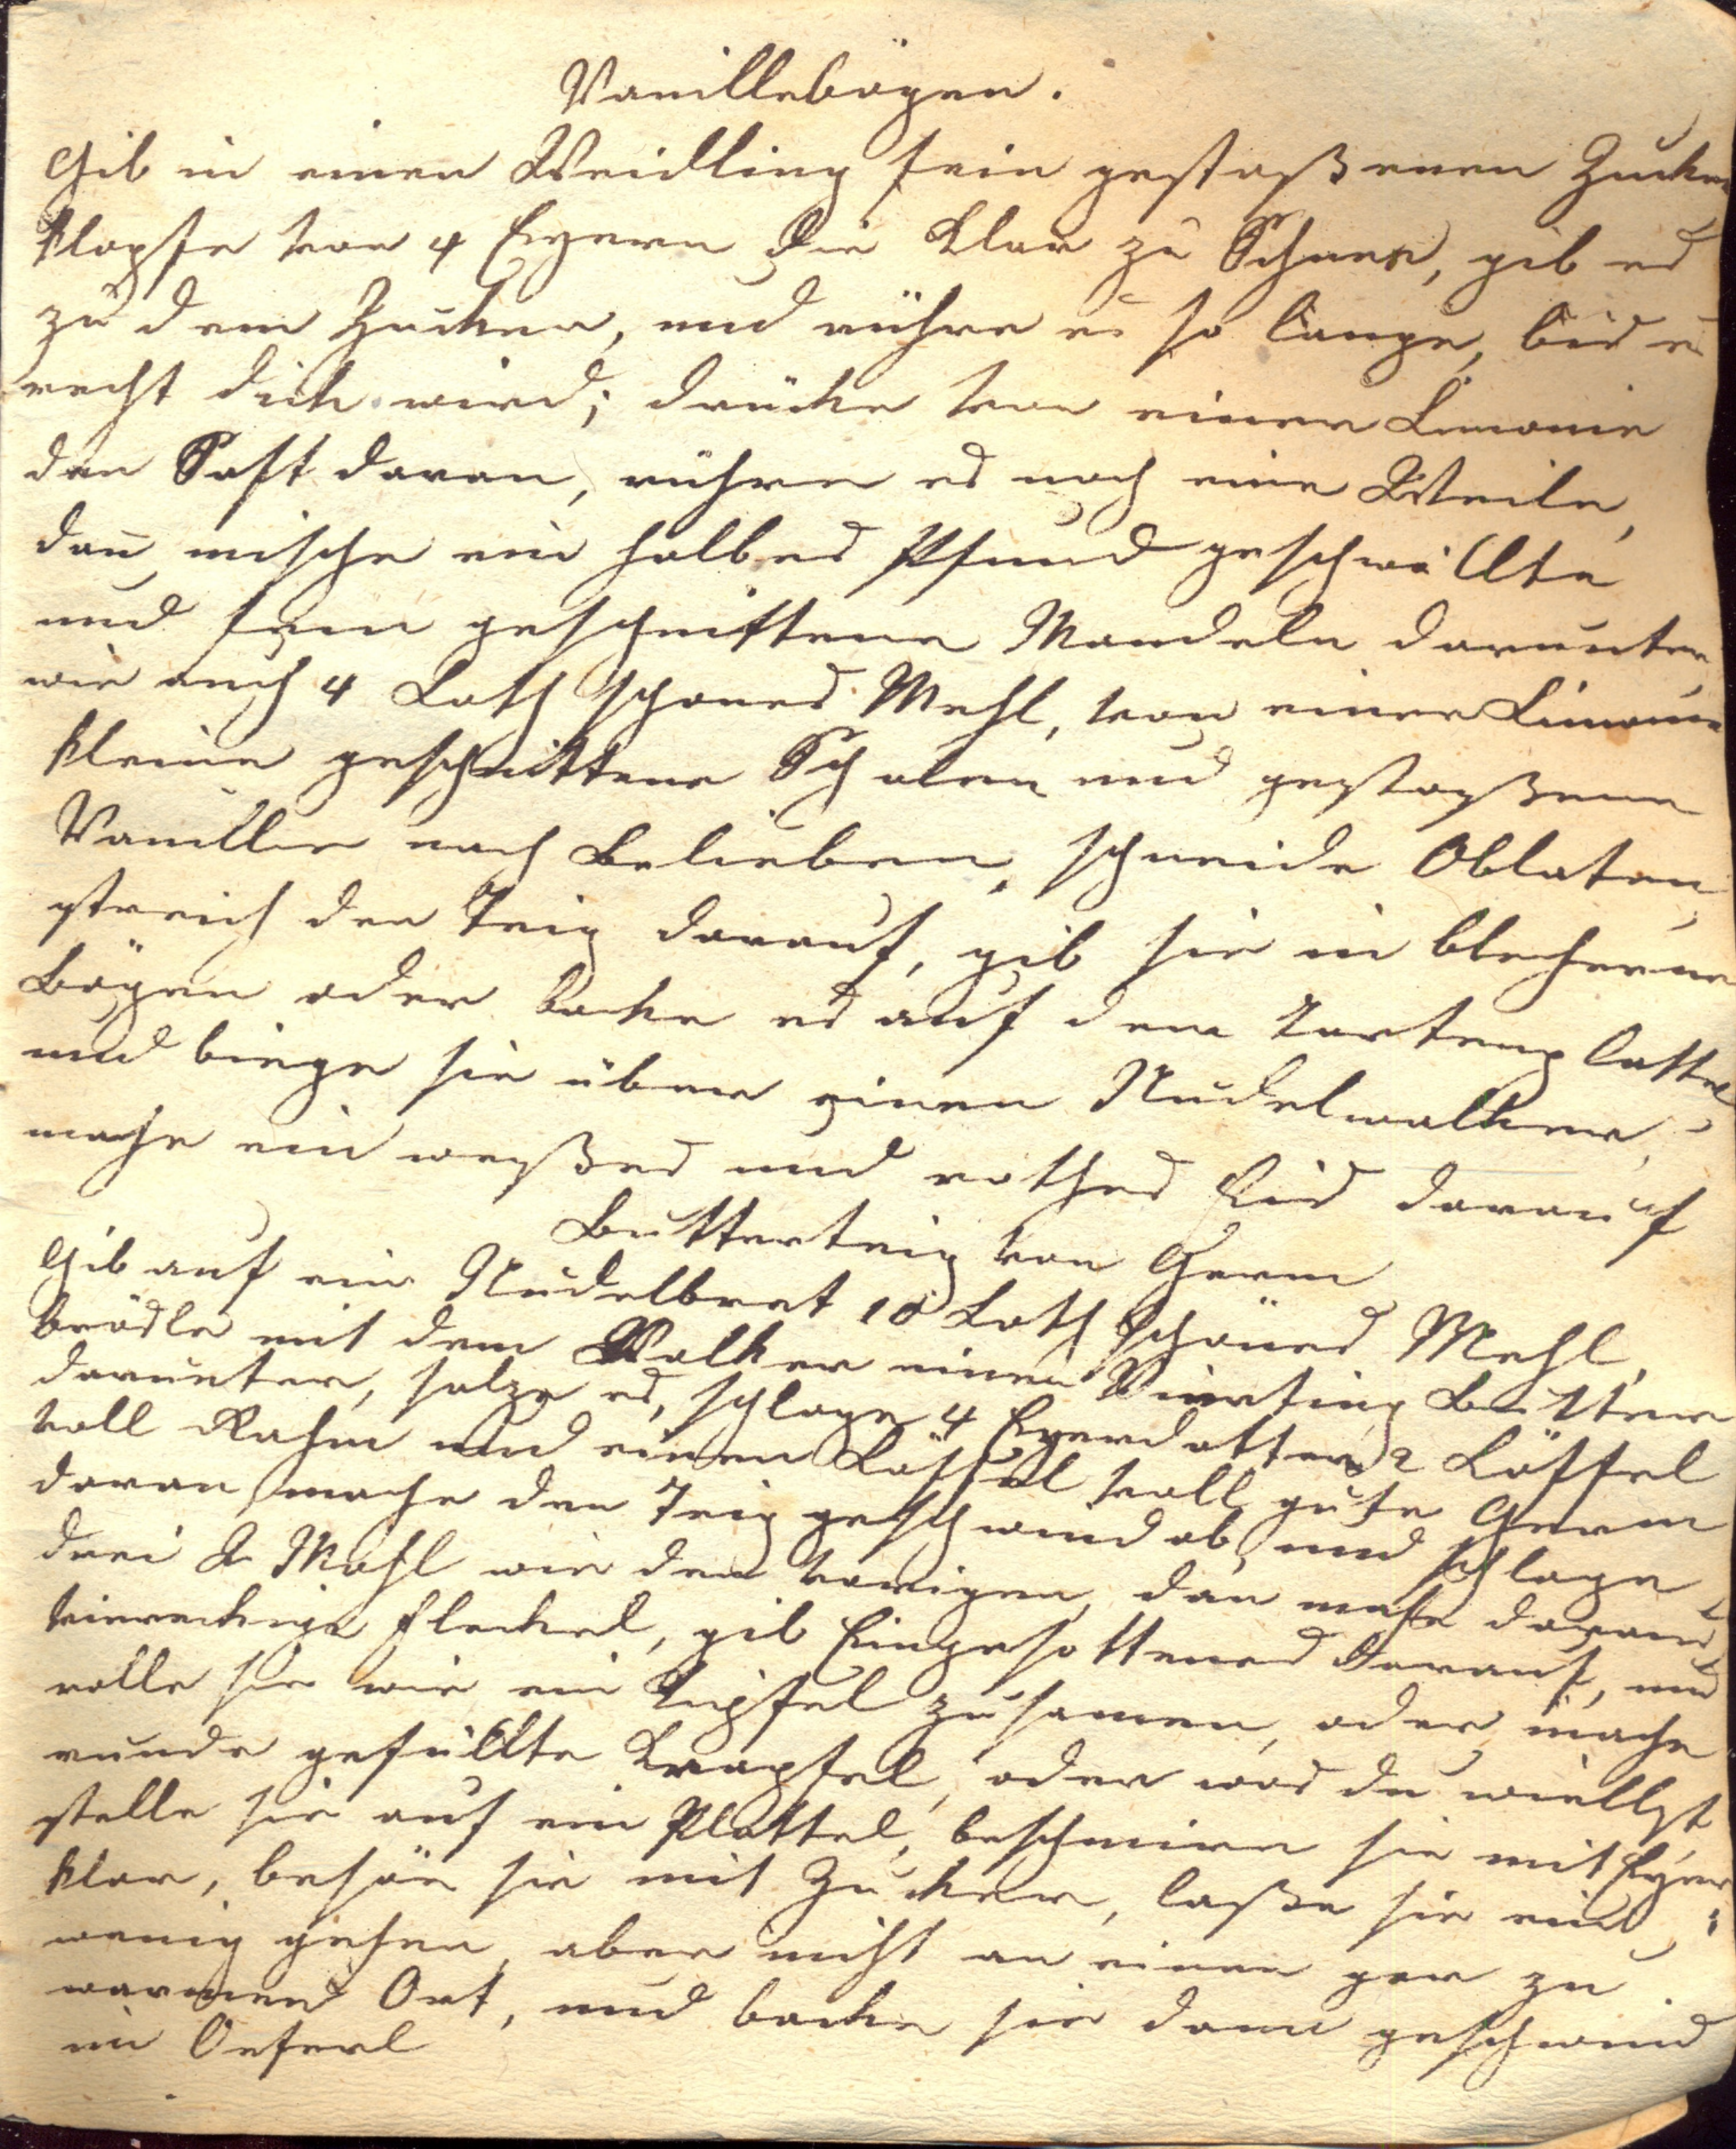 Vanillebögen.
Gib in einen Weidling fein gestoßenen Zucker
klopfe von 4 Eyern die Klar zu Schnee, gib es
zu dem Zucker, und rühre es so lange, bis es
recht dick wird; drücke von einer Limonie
den Saft daran, rühre es noch eine Weile,
dan̄ mische ein halbes Pfund geschwällte
und fein geschnittene Mandeln darunter,
wie auch 4 Loth schönes Mehl, von einer Limonie
kleine geschnittene Schalen und gestoßene
Vanillie nach Belieben, schneide Oblaten,
streich den Teig darauf, gib sie in blecherne
Bögen oder backe es auf dem Tortenplattel
und biege sie über einen Nudelwalker,
mache ein weißes und rothes Eis darauf
Butterteig von Germ
Gib auf ein Nudelbret 10 Loth schönes Mehl,
brösle mit dem Walker einen Vierting Butter
darunter, salze es, schlage 4 Eyerdotter, 2 Löffel
voll Rahm und einen Löffel voll gute Germ
daran, mache den Teig geschwind ab, und schlage
drei Mahl wie den vorigen, dan mache daraus
viereckige Fleckel, gib Eingesottenes darauf, und
rolle sie wie ein Kipfel zusamen, oder mache
runde gefüllte Krapfel, oder was du willst,
stelle sie auf ein Plattel, beschmiere sie mit Eyer
klar, besäe sie mit Zucker, laße sie ein
wenig gehen, aber nicht an einen gar zu
warmen Ort, und backe sie dann geschwind
im Oeferl